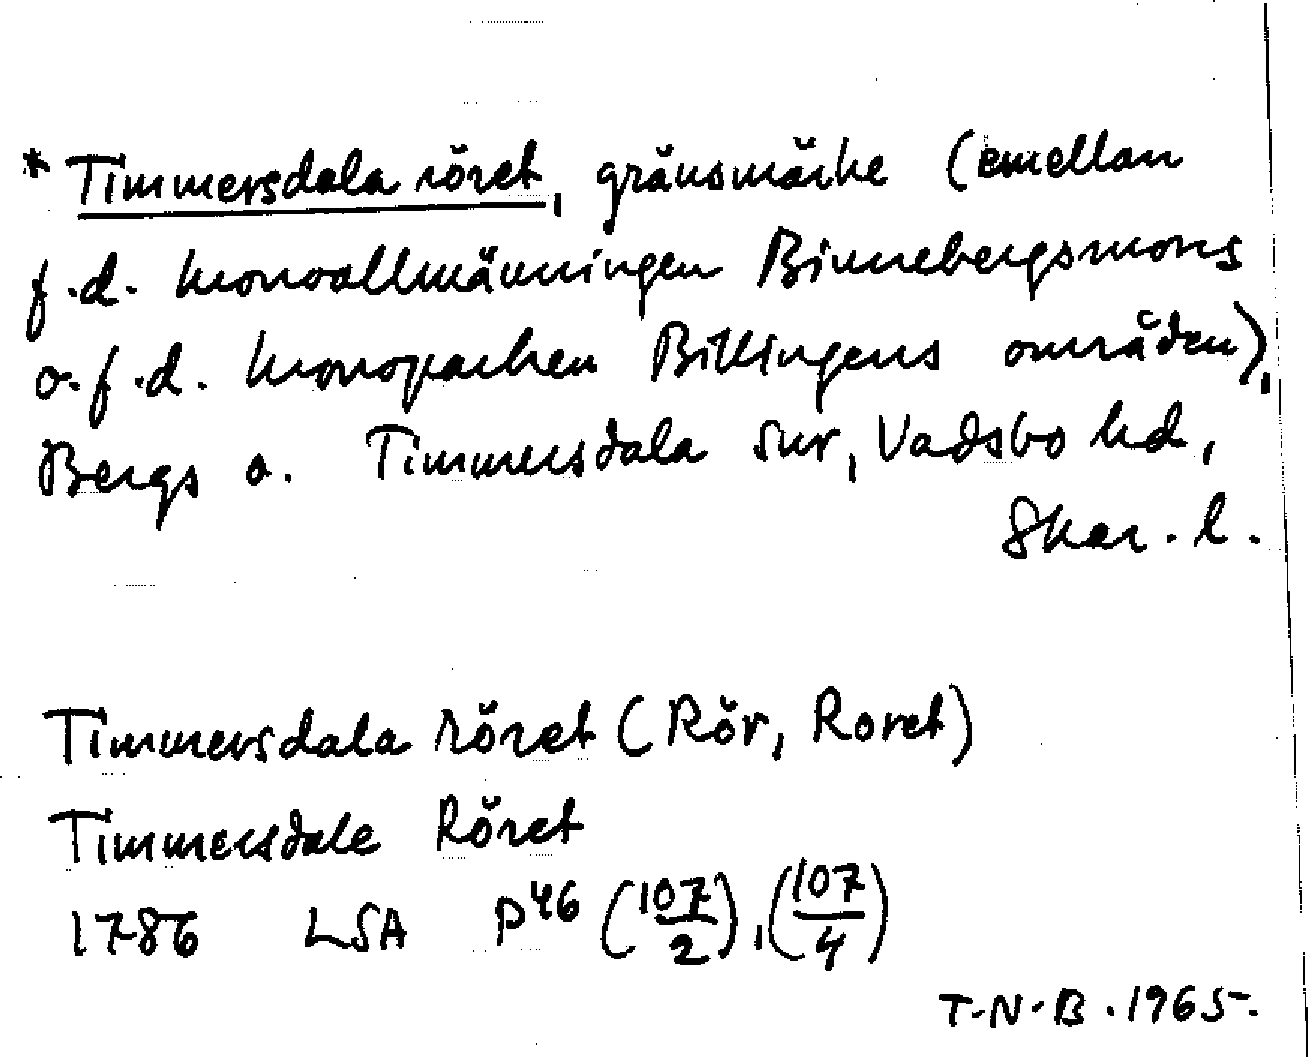 * Timmersdala röret, gränsmärke (emellan
f.d. kronoallmänningen Binnebergsmons
o. f.d. kronoparken Billingens områden),
Bergs o. Timmersdala snr, Vadsbo hd,
Skar. l.
Timmersdala röret (Rör, Roret)
Timmersdale Röret
1786 LSA P46 (107/2), (107/4)
T.N.B. 1965.